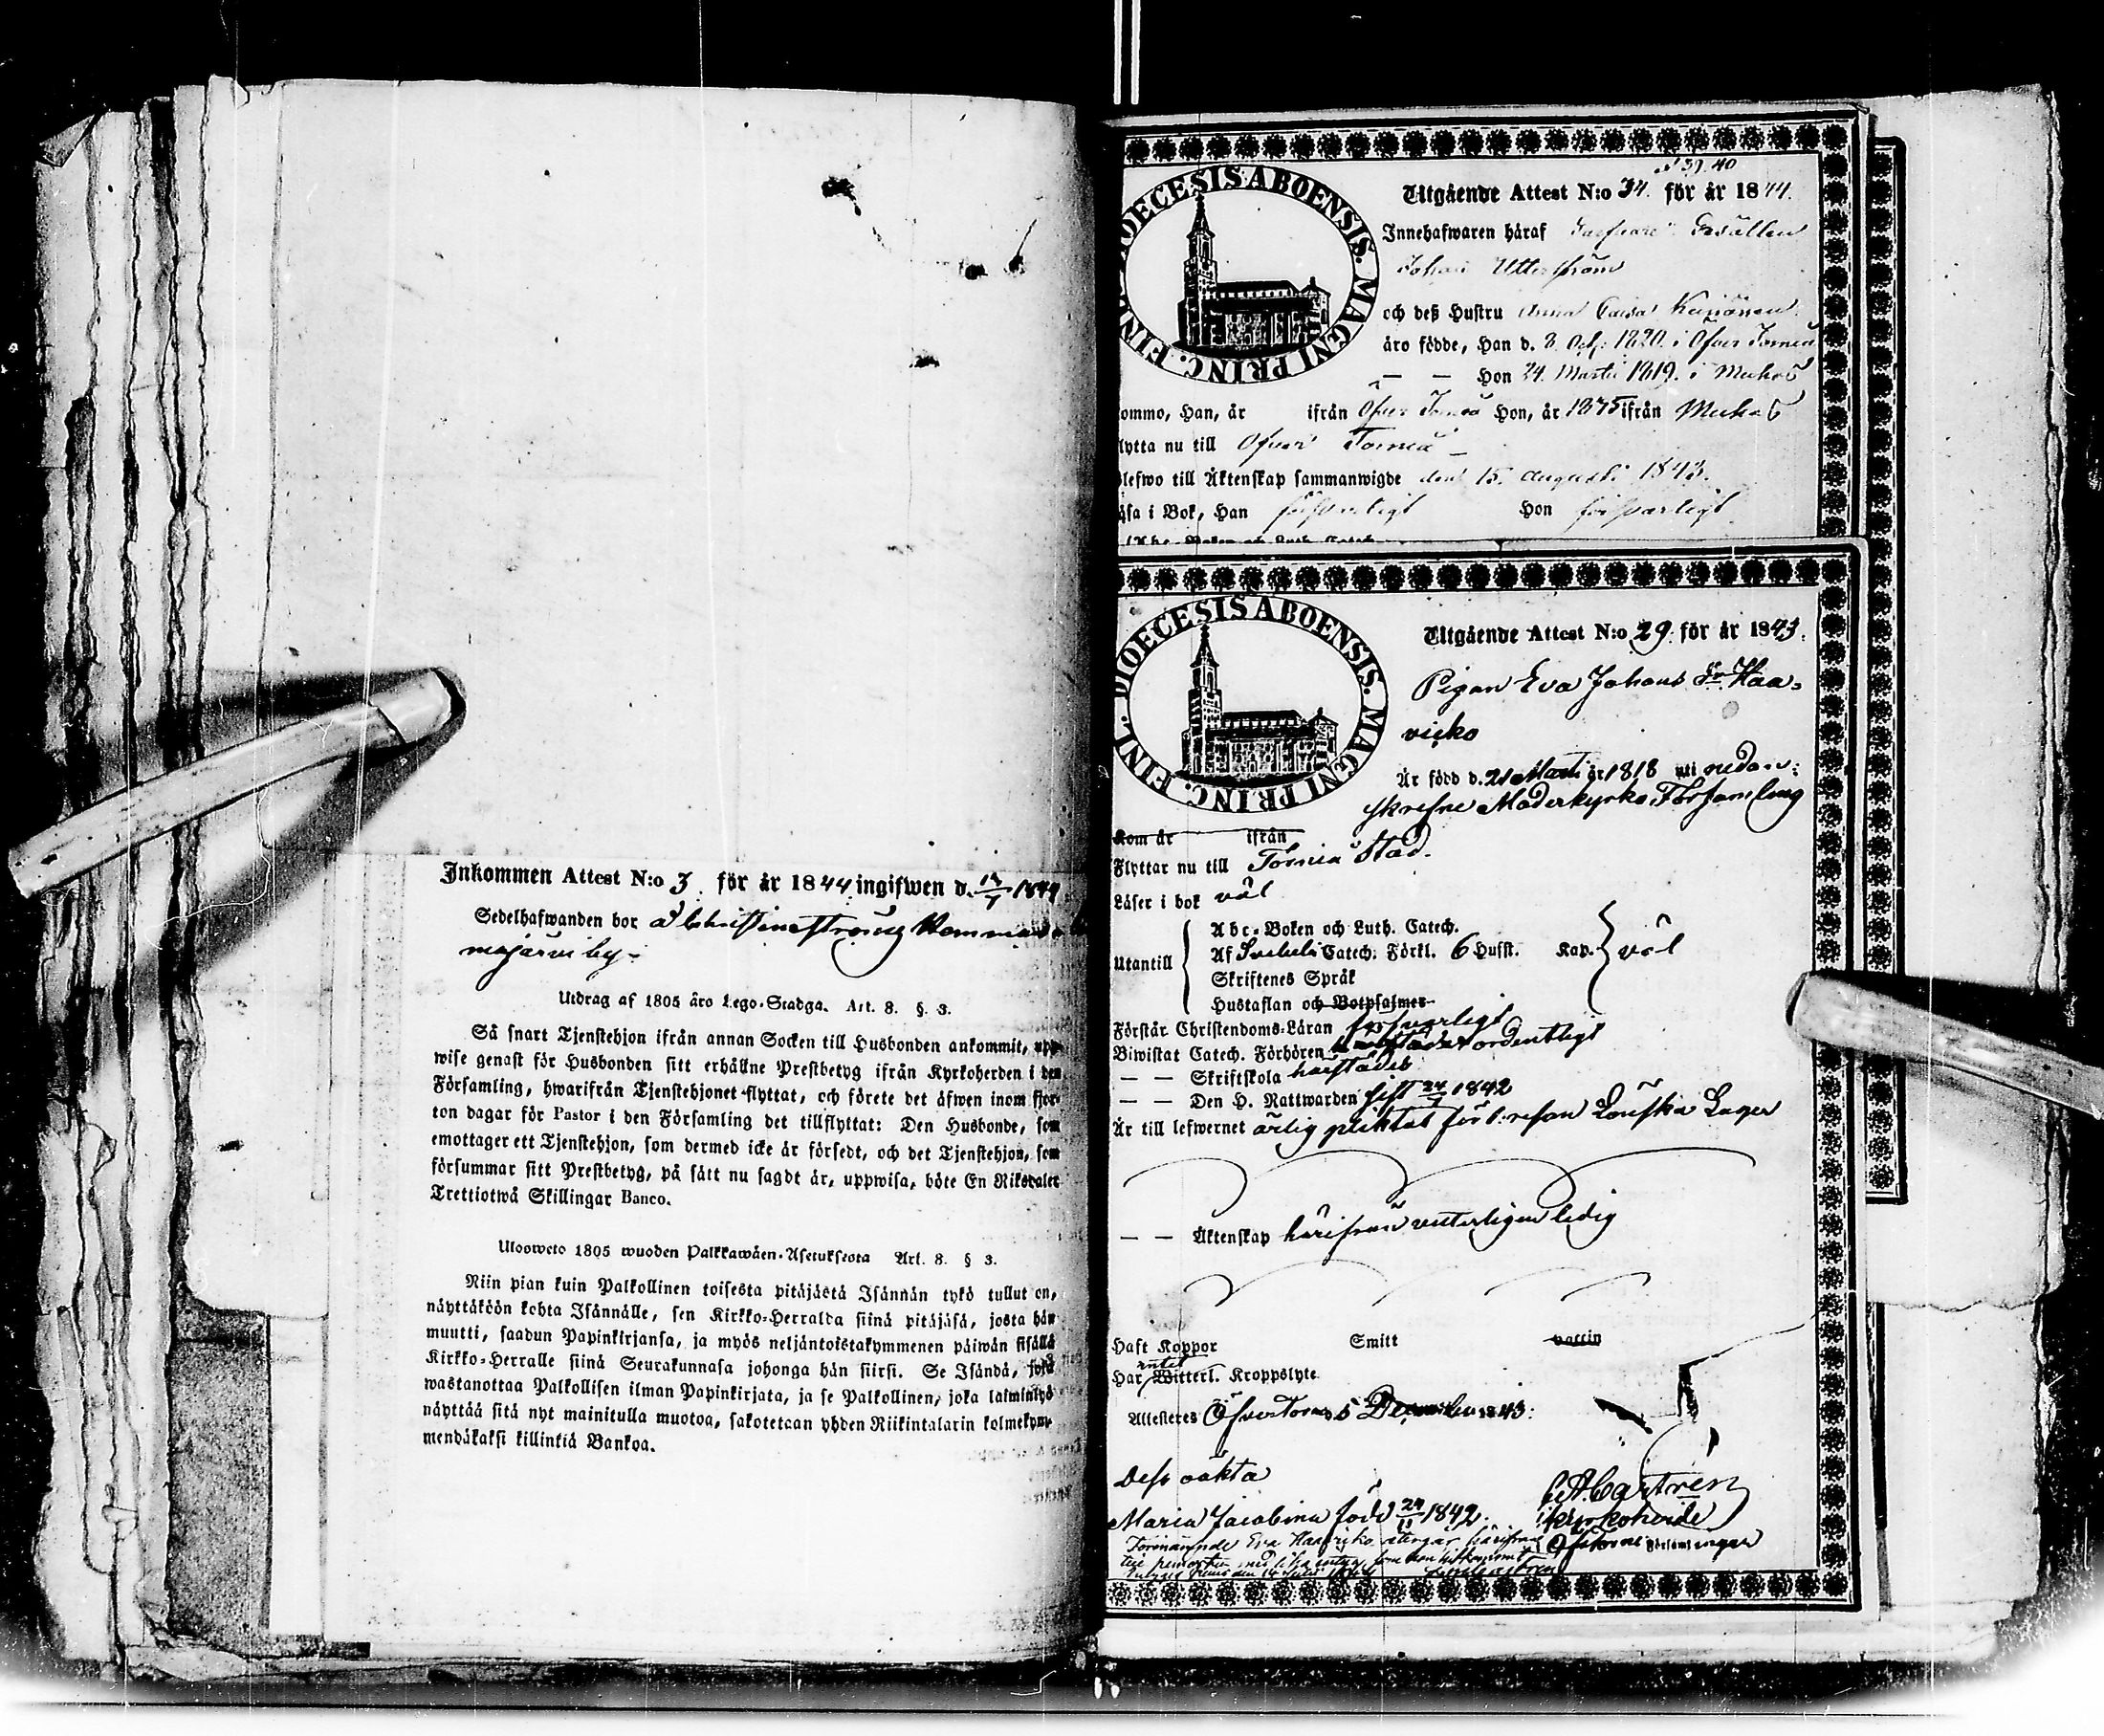 Inkommen Attest N:o 3. för år 1844 ingifwen d. 14/7 1844
Sedelhafwanden bor
majärvi by.
Utdrag af 1805 åro Lego-Stadga. Art. 8. §. 3.
Så snart Tjenstehjon ifrån annan Socken till Husbonden ankommit, upp-
wise genast för Husbonden sitt erhållne Prestbetyg ifrån Kyrkoherden i den
Församling, hwarifrån Tjenstehjonet flyttat, och förete det äfwen inom fjor-
ton dagar för Pastor i den Församling det tillflyttat: Den Husbonde, som
emottager ett Tjenstehjon, som dermed icke är försedt, och det Tjenstehjon, som
försummar sitt Prestbetyg, på sätt nu sagdt är, uppwisa, böte En Riksdaler
Trettiotwå Skillingar Banco.
Ulosweto 1805 wuoden Palkkawäen-Asetuksesta Art. 8. § 3.
Niin pian kuin Palkollinen toisesta pitäjästä Isännän tykö tullut on,
näyttäköön kohta Isännälle, sen Kirkko-Herralda siinä pitäjäsä, josta hän
muutti, saadun Papinkirjansa, ja myös neljäntoistakymmenen päiwän sisällä
Kirkko-Herralle siinä Seurakunnasa johonga hän siirsi. Se Isändä, joka
wastanottaa Palkollisen ilman Papinkirjata, ja se Palkollinen, joka laiminlyö
näyttää sitä nyt mainitulla muotoa, sakotetaan yhden Riikintalarin kolmekym-
mendäkaksi killinkiä Bankoa.
FINL. DIOECESIS ABOENSIS. MAGNI PRINC.
39. 40
Utgående Attest N:o 34. för år 1844.
Innehafwaren häraf Gesällen
Johan Utterström
och deß Hustru Anna Caisa
äro födde, Han d. 8 Oct. 1820. i Öfver Torneå
— — Hon 24. Martii 1819. i Muhos
ommo, Han, år ifrån Öfver Torneå Hon, år ifrån Muhos
lytta nu till Öfver Torneå
blefwo till Äktenskap sammanwigde den 15. Augusti 1843.
äsa i Bok, Han försvarligt Hon försvarligt
FINL. DIOECESIS ABOENSIS. MAGNI PRINC.
Utgående Attest N:o 29. för år 1843.
Pigan Eva Johans dr Haa-
vicko
Är född d. 21 Martii år 1818 uti nedan-
skrefne Moderkyrko Församling
Kom år ifrån
Flyttar nu till Torneå Stad.
Läser i bok väl
Utantill
Abc-Boken och Luth. Catech.
Af Svebeli Catech. Förkl. 6 Hufst. Kap. väl
Skriftenes Språk
Hustaflan och Botpsalmer
Förstår Christendoms-Läran försvarligt
Biwistat Catech. Förhören ordentligt
— — Skriftskola härstädes
— — Den H. Nattwarden sist 24/7 1842
Är till lefwernet ärlig pliktat för Lönska Läger
— — Äktenskap härifrån veterligen ledig
Haft Koppor Smitt vaccin
Har intet Witterl. Kroppslyte
Attesteras Öfvertorneå 5 December 1843:
Dess oäkta
Maria Jacobina född 24/11 1842.
Castrén
kyrkoherde